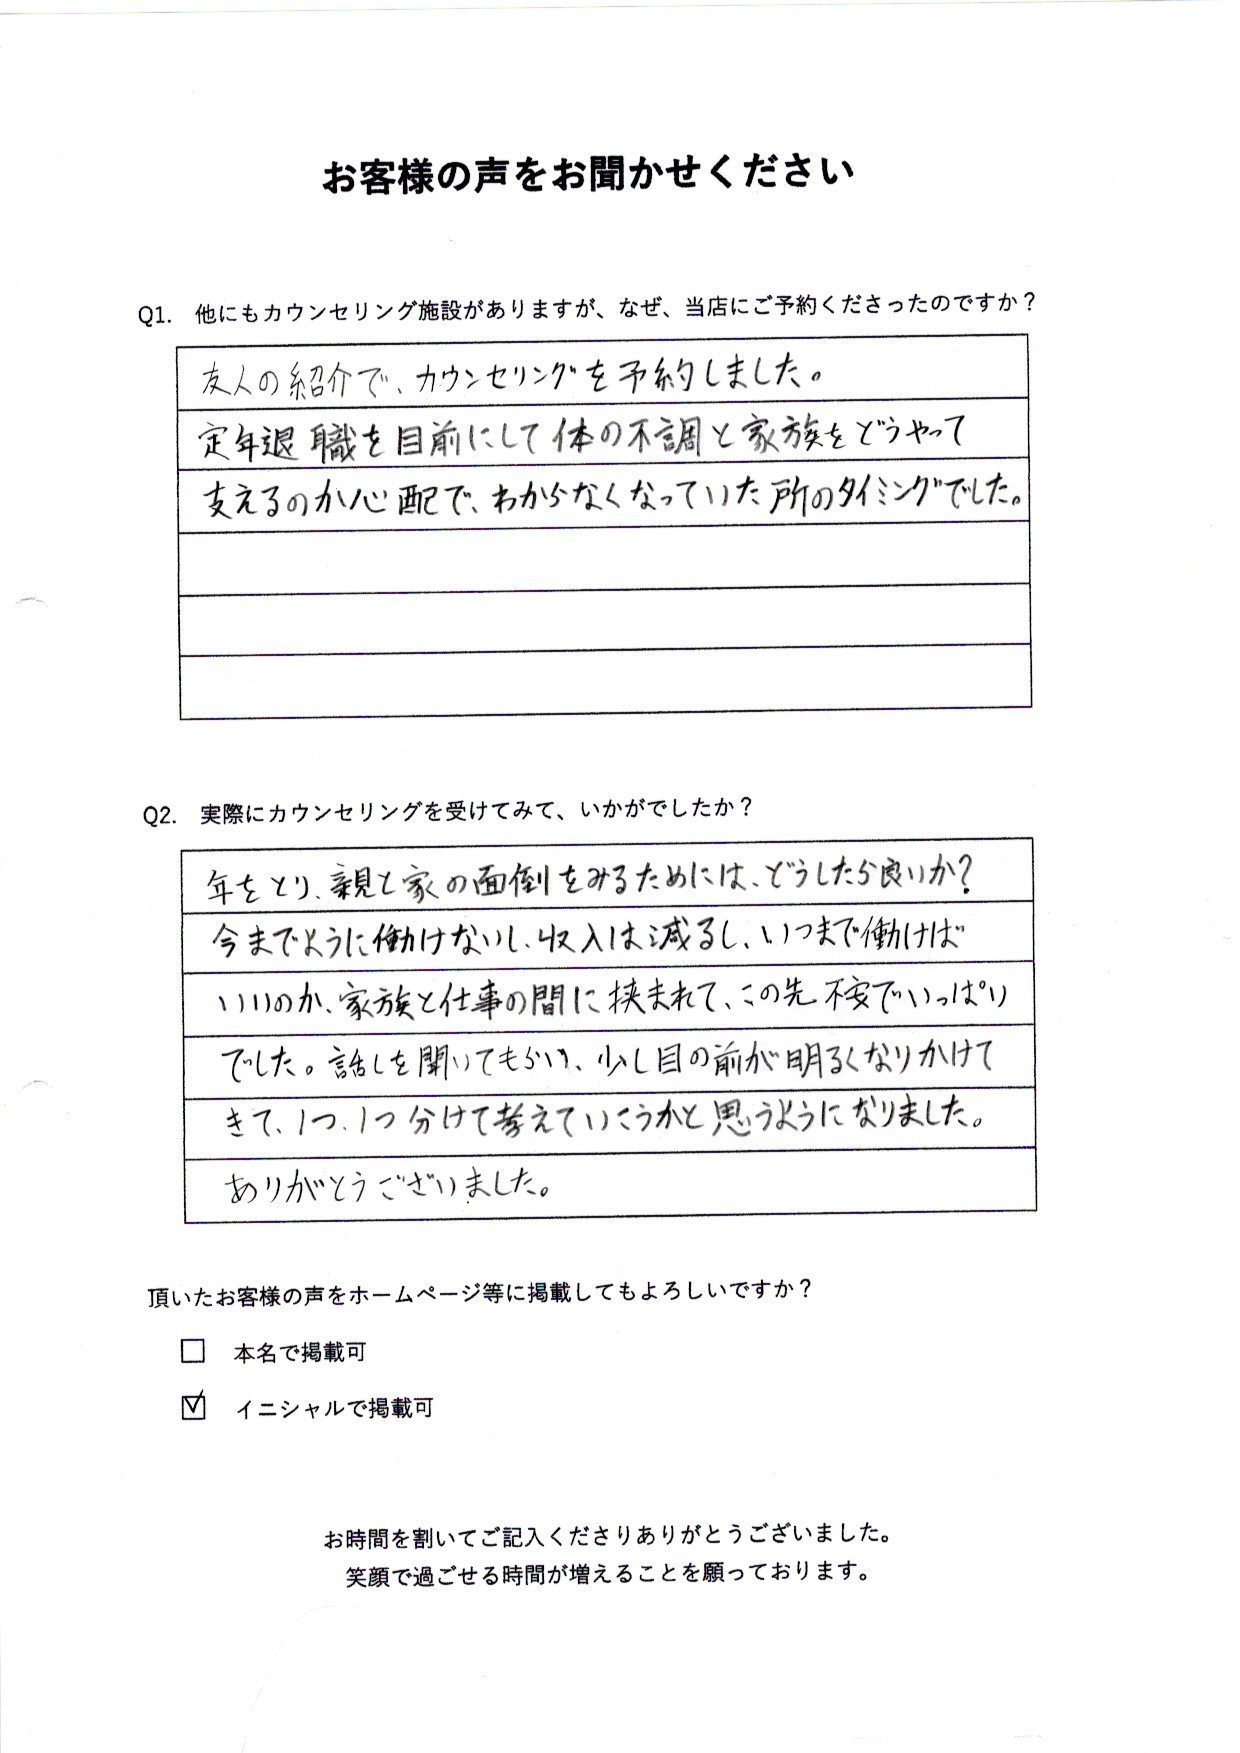 お客様の声をお聞かせください
Q1. 他にもカウンセリング施設がありますが、なぜ、当店にご予約くださったのですか？
友人の紹介で、カウンセリングを予約しました。
定年退職を目前にして体の不調と家族をどうやって
支えるのか心配で、わからなくなっていた所のタイミングでした。
Q2. 実際にカウンセリングを受けてみて、いかがでしたか？
年をとり、親と家の面倒をみるためには、どうしたら良いか?
今までように働けないし、収入は減るし、いつまで働けば
いいのか、家族と仕事の間に挟まれて、この先不安でいっぱい
でした。話しを聞いてもらい、少し目の前が明るくなりかけて
きて、1つ、1つ分けて考えていこうかと思うようになりました。
ありがとうございました。
頂いたお客様の声をホームページ等に掲載してもよろしいですか？
本名で掲載可
イニシャルで掲載可
お時間を割いてご記入くださりありがとうございました。
笑顔で過ごせる時間が増えることを願っております。